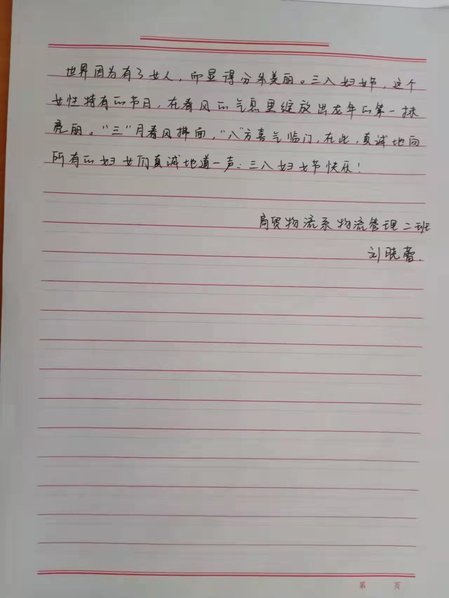 世界因为有了女人，而显得分外美丽。三八妇女节，这个
女性特有的节日，在春风的气息里绽放出龙年的第一抹
亮丽。“三”月春风拂面，“八”方喜气临门，在此，真诚地向
所有的妇女们真诚地道一声：三八妇女节快乐！
商贸物流系物流管理二班
刘晓蕾
第 页